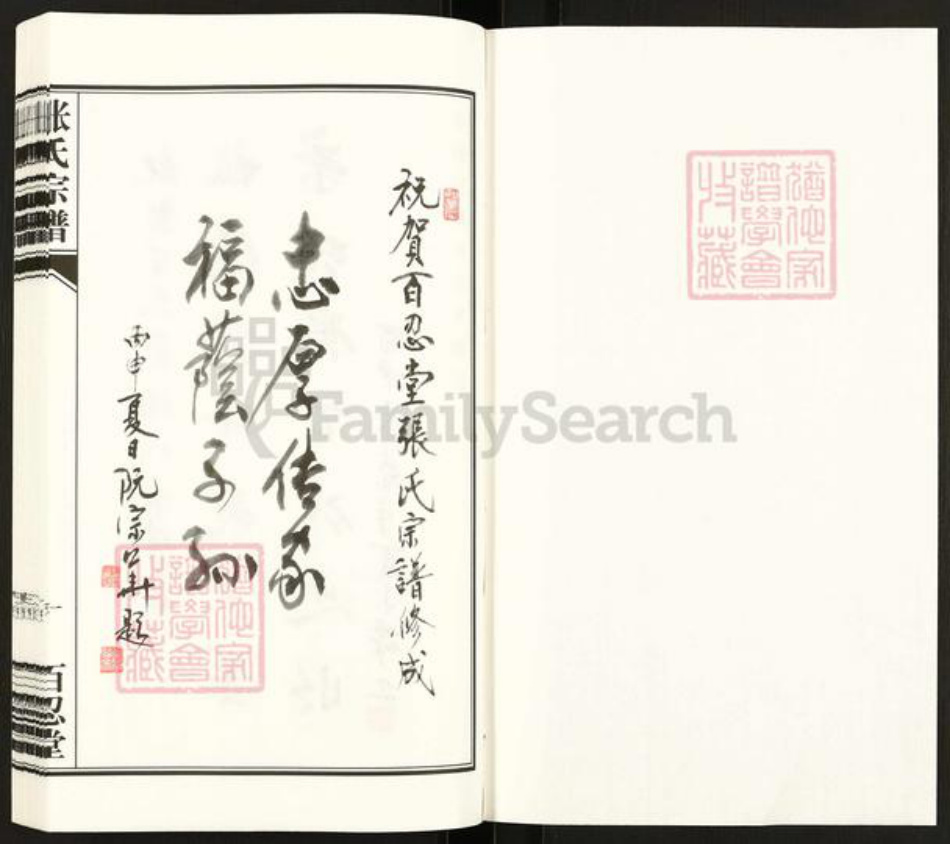 祝賀百忍堂張氏宗譜修成
忠厚传家
福蔭子孙
丙申夏日阮宗華題
张氏宗谱
一
百忍堂
猶他家
譜學會
收藏
猶他家
譜學會
收藏
FamilySearch